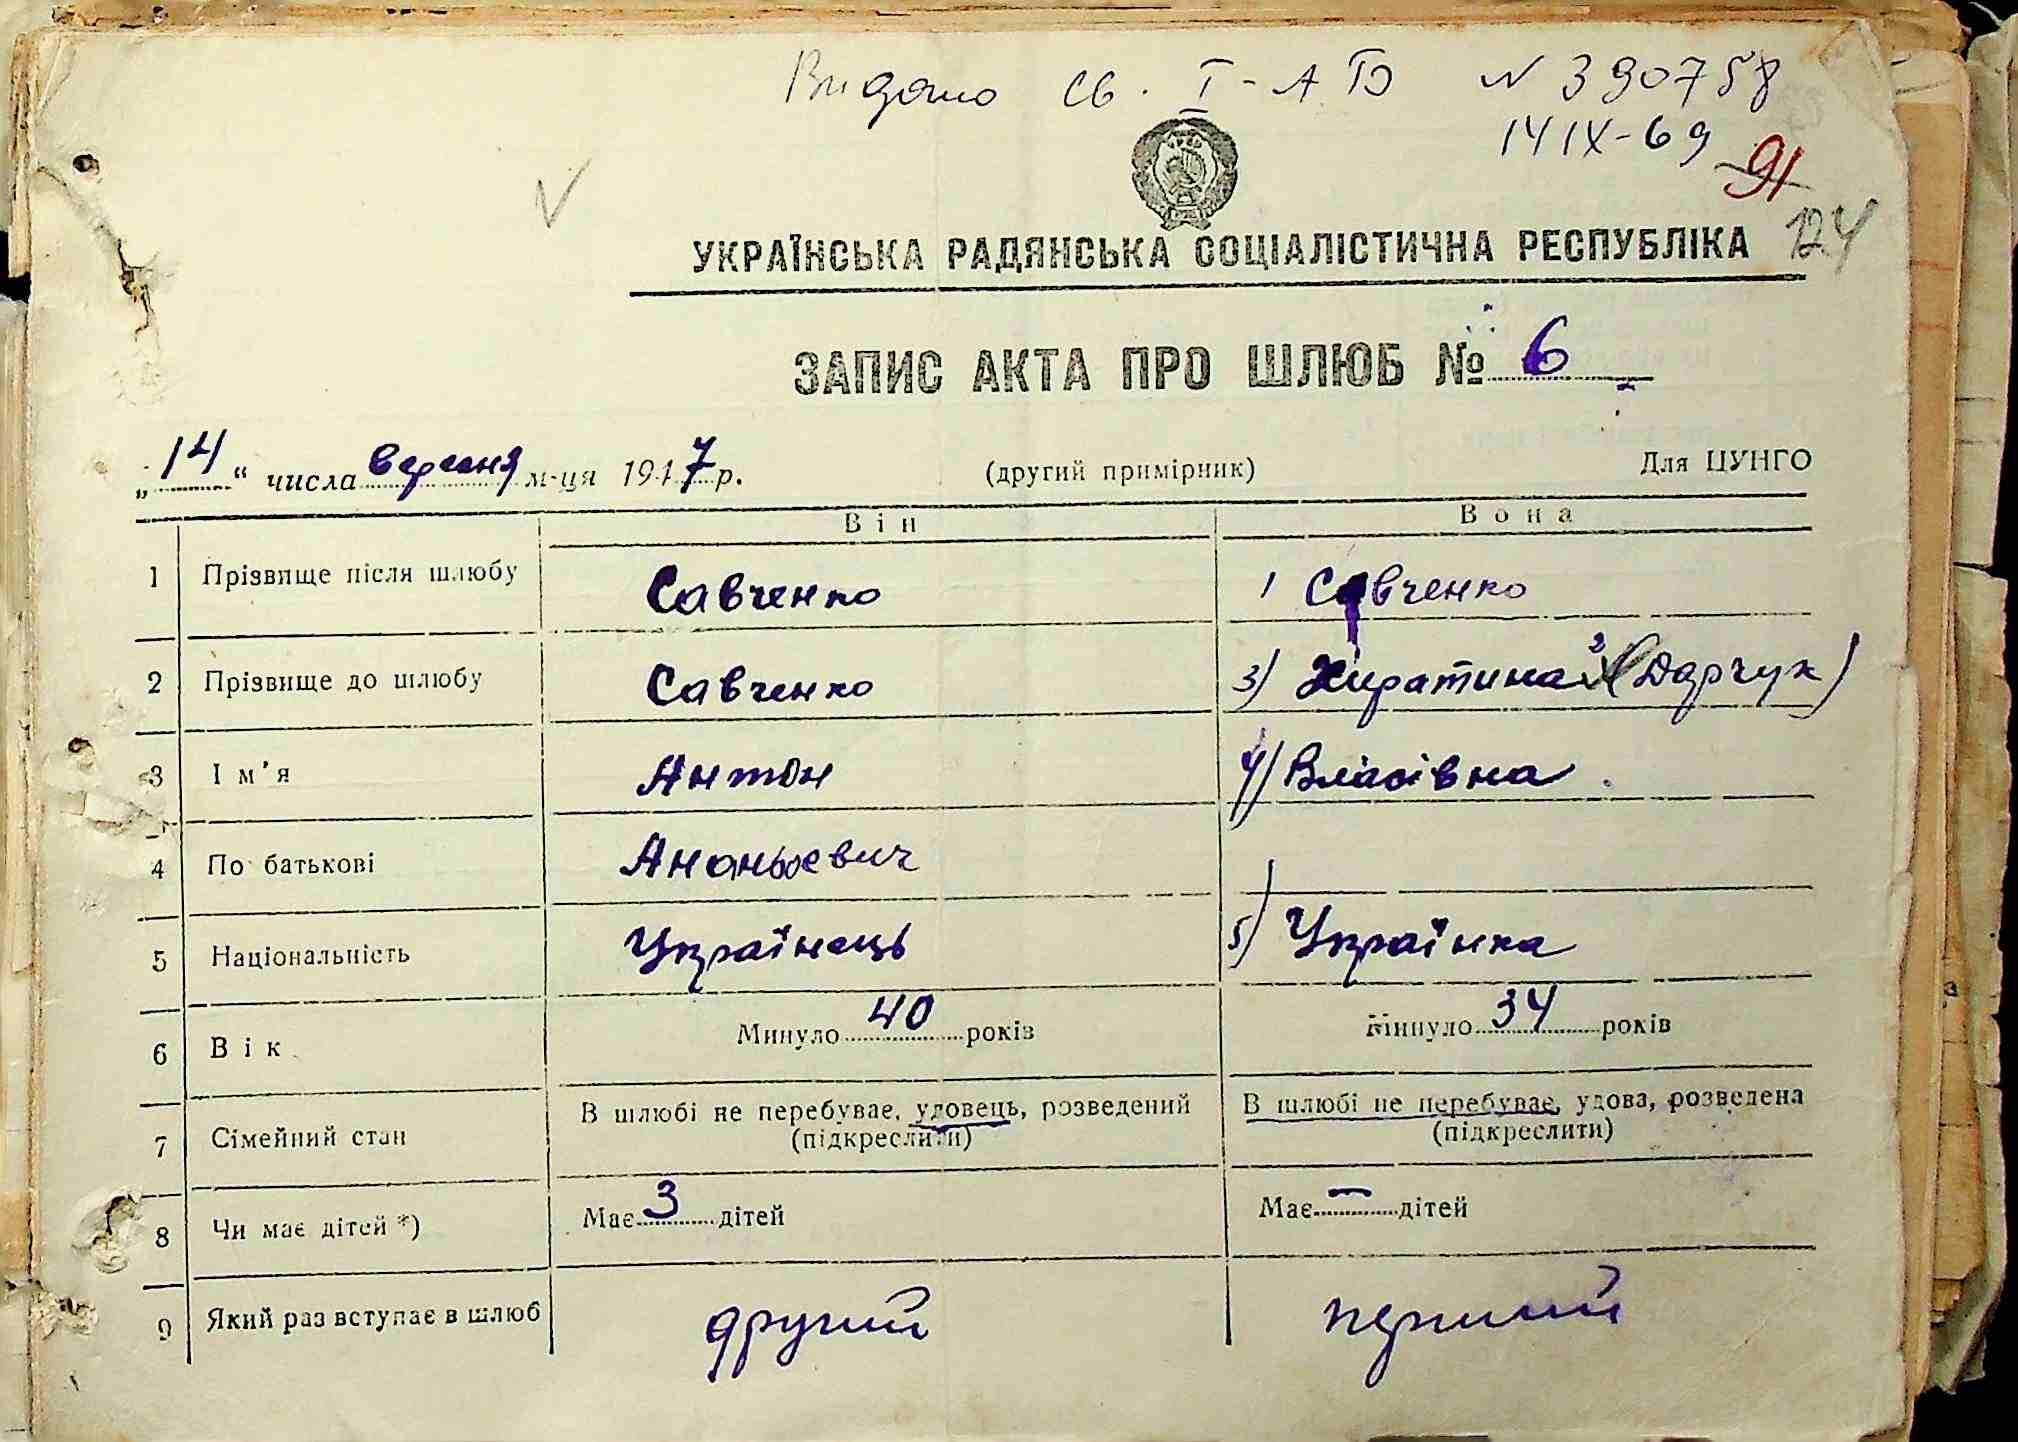 Видано св. І-АБ № 390758
14 IX-69
91
124
УКРАЇНСЬКА РАДЯНСЬКА СОЦІАЛІСТИЧНА РЕСПУБЛІКА
ЗАПИС АКТА ПРО ШЛЮБ № 6
„14“ числа вересня м-ця 1947 р. (другий примірник) Для ЦУНГО
Він Вона
1 Прізвище після шлюбу Савченко 1 Савченко
2 Прізвище до шлюбу Савченко 3) 2 (Дарчук)
3 Ім'я Антон 4) Власівна
4 По батькові Ананьевич
5 Національність Українець 5) Українка
6 Вік Минуло 40 років Минуло 34 років
7 Сімейний стан В шлюбі не перебуває, удовець, розведений (підкреслити) В шлюбі не перебуває, удова, розведена (підкреслити)
8 Чи має дітей *) Має 3 дітей Має — дітей
9 Який раз вступає в шлюб другий перший